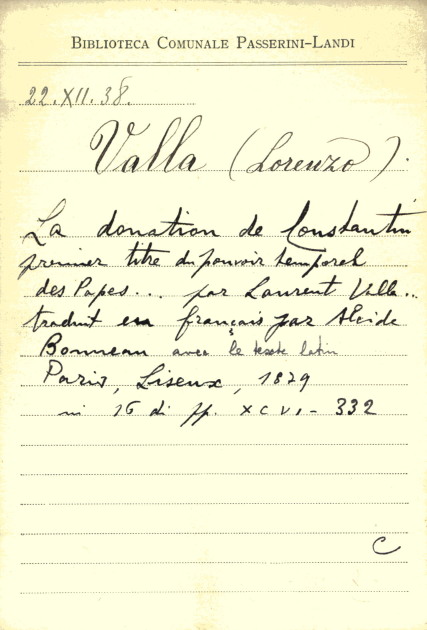 BIBLIOTECA COMUNALE PASSERINI-LANDI
22.XII.38.
Valla (Lorenzo).
La donation de Constantin
premier titre du pouvoir temporel
des Papes... par Laurent Valla...
traduit en français par Alcide
Bonneau avec le texte latin
Paris, Liseux, 1879
in 16 di pp. XCVI - 332
C